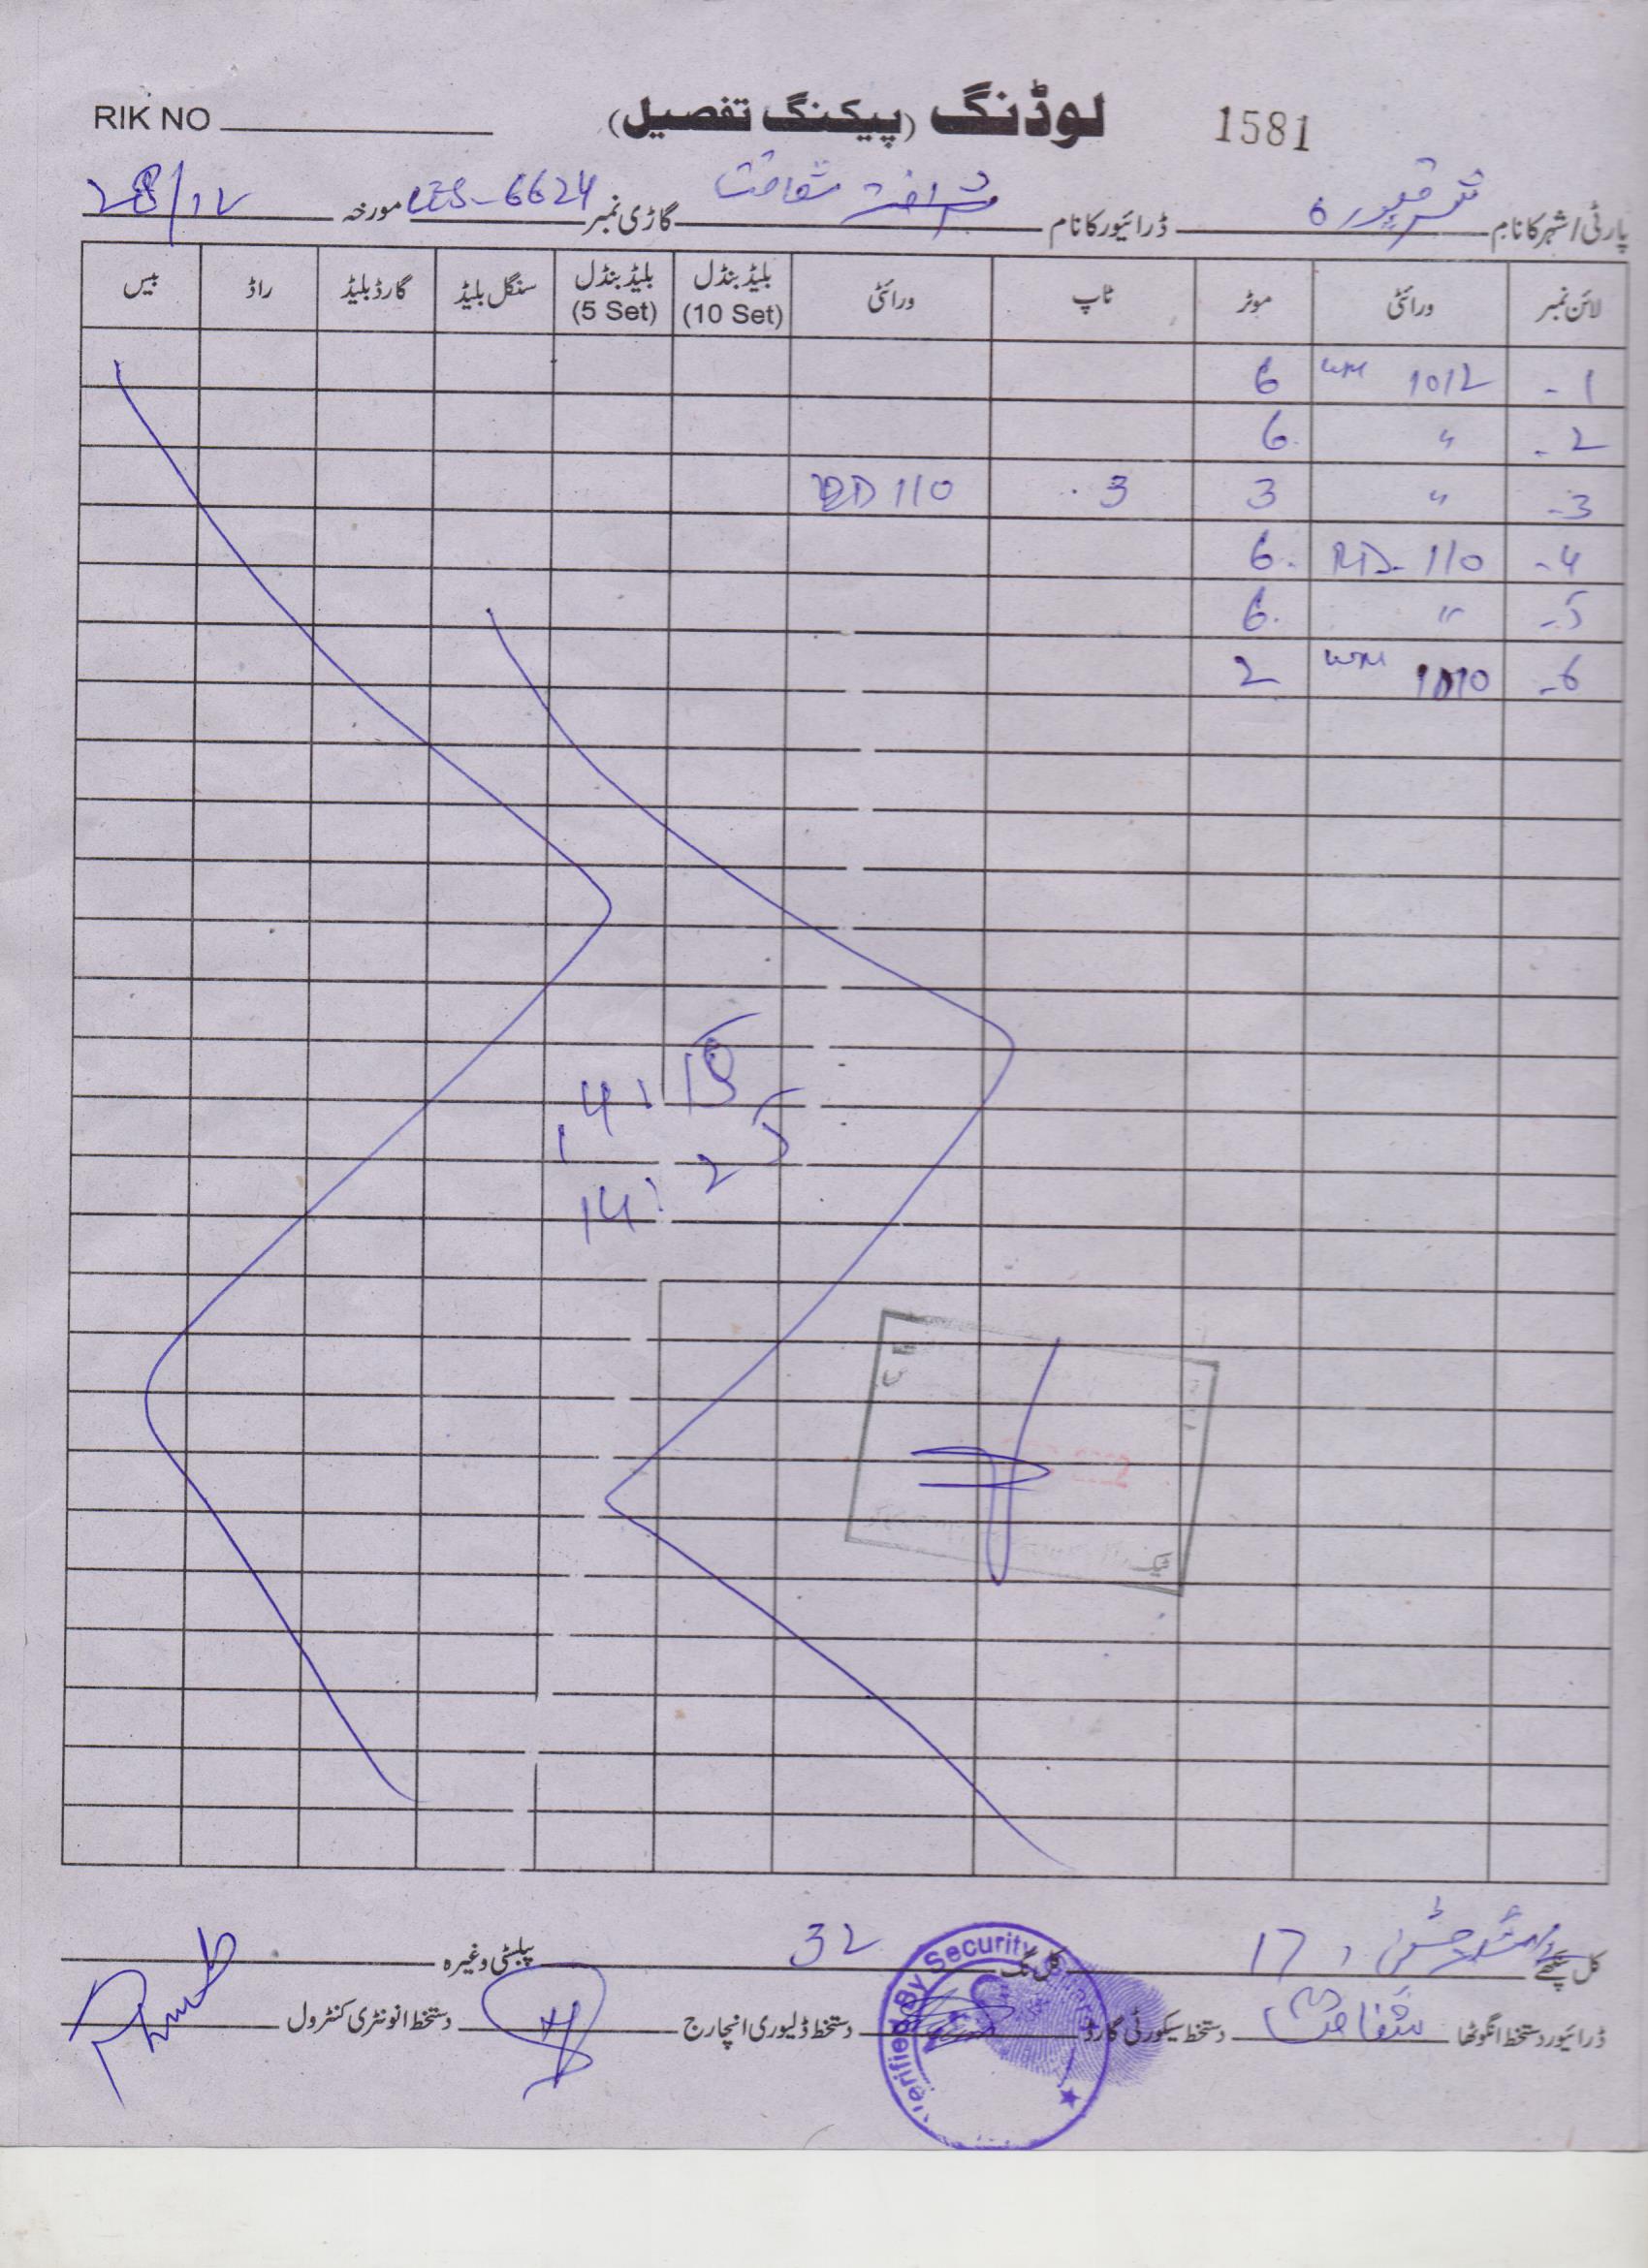 RIK NO لوڈنگ (پیکنگ تفصیل) 1581
پارٹی/شہر کا نام شرقپور ڈرائیور کا نام شفاقت گاڑی نمبر LES-6624 مورخہ 28/12
لائن نمبر ورائٹی موٹر ٹاپ ورائٹی بلیڈ بنڈل (10 Set) بلیڈ بنڈل (5 Set) سنگل بلیڈ گارڈ بلیڈ راڈ بیس
1- WM 1012 6
2- " 6
3- " 3 3 RD 110
4- RD-110 6
5- " 6
6- WM 1010 2
14:
کل پنکھے 17 کل نگ 32 پبلسٹی وغیرہ
ڈرائیور دستخط انگوٹھا شفاقت دستخط سیکورٹی گارڈ دستخط ڈلیوری انچارج دستخط انونٹری کنٹرول
Verified By Security